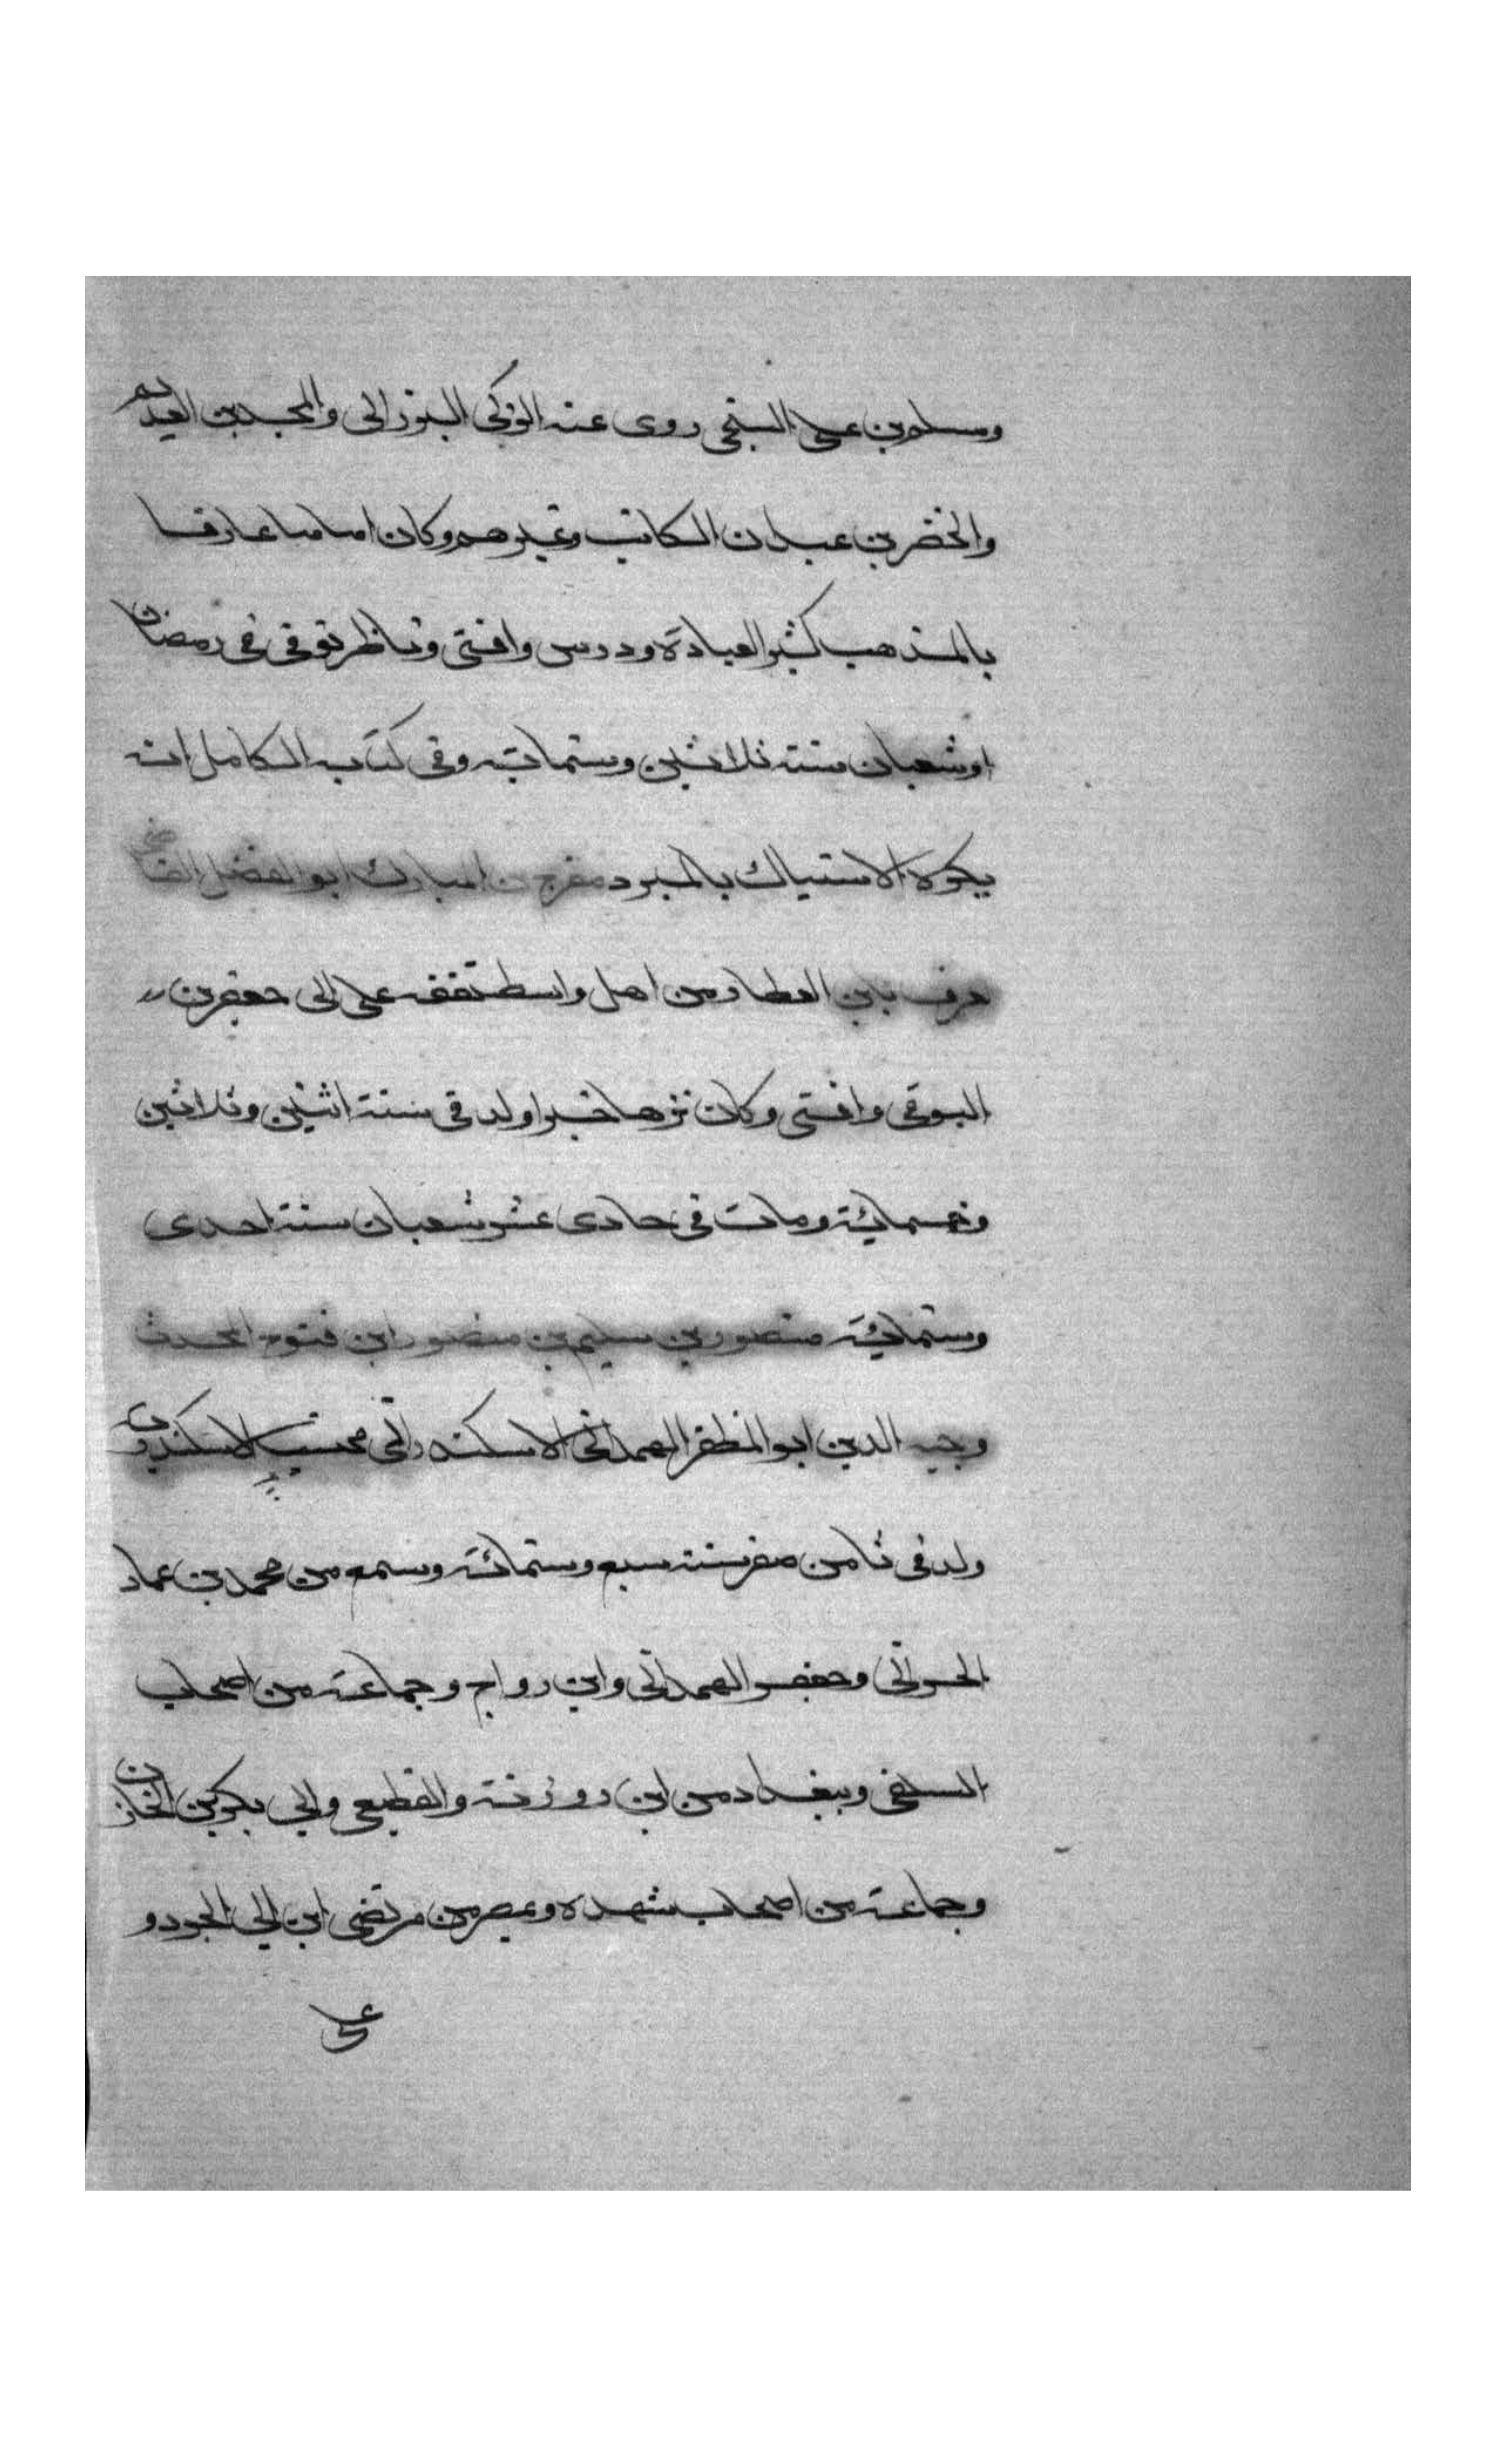 ومسلم بن علي السنجي روى عنه الزكي البنزالي والمجد بن العديم
والخضر بن عبدان الكاتب وغيرهم وكان اماما عارفا
بالمذهب كثير العبادة ودرس وافتى وناظر توفي في رمضان
او شعبان سنة ثلاثين وستماية وفي كتاب الكامل انه
يكره الاستياك بالمبرد مفرج بن المبارك ابو الفضل القاضي
عرف بابن العطار من اهل واسط تفقه على ابى جعفر بن
البوقي وافتى وكان نزها خيرا ولد في سنة اثنين وثلاثين
وخمسمائة ومات في حادى عشر شعبان سنة احدى
وستمائة منصور بن سليم بن منصور ابن فتوح المحدث
وجيه الدين ابو المظفر الهمداني الاسكندراني محتسب الاسكندرية
ولد في ثامن صفر سنة سبع وستمائة وسمع من محمد بن عماد
الحراني وجعفر الهمداني وابن رواج وجماعة من اصحاب
السلفي وببغداد من ابن روزبة والقطيعي وابي بكر بن الخازن
وجماعة من اصحاب شهدة وبمصر من مرتضى ابن ابي الجود و
على